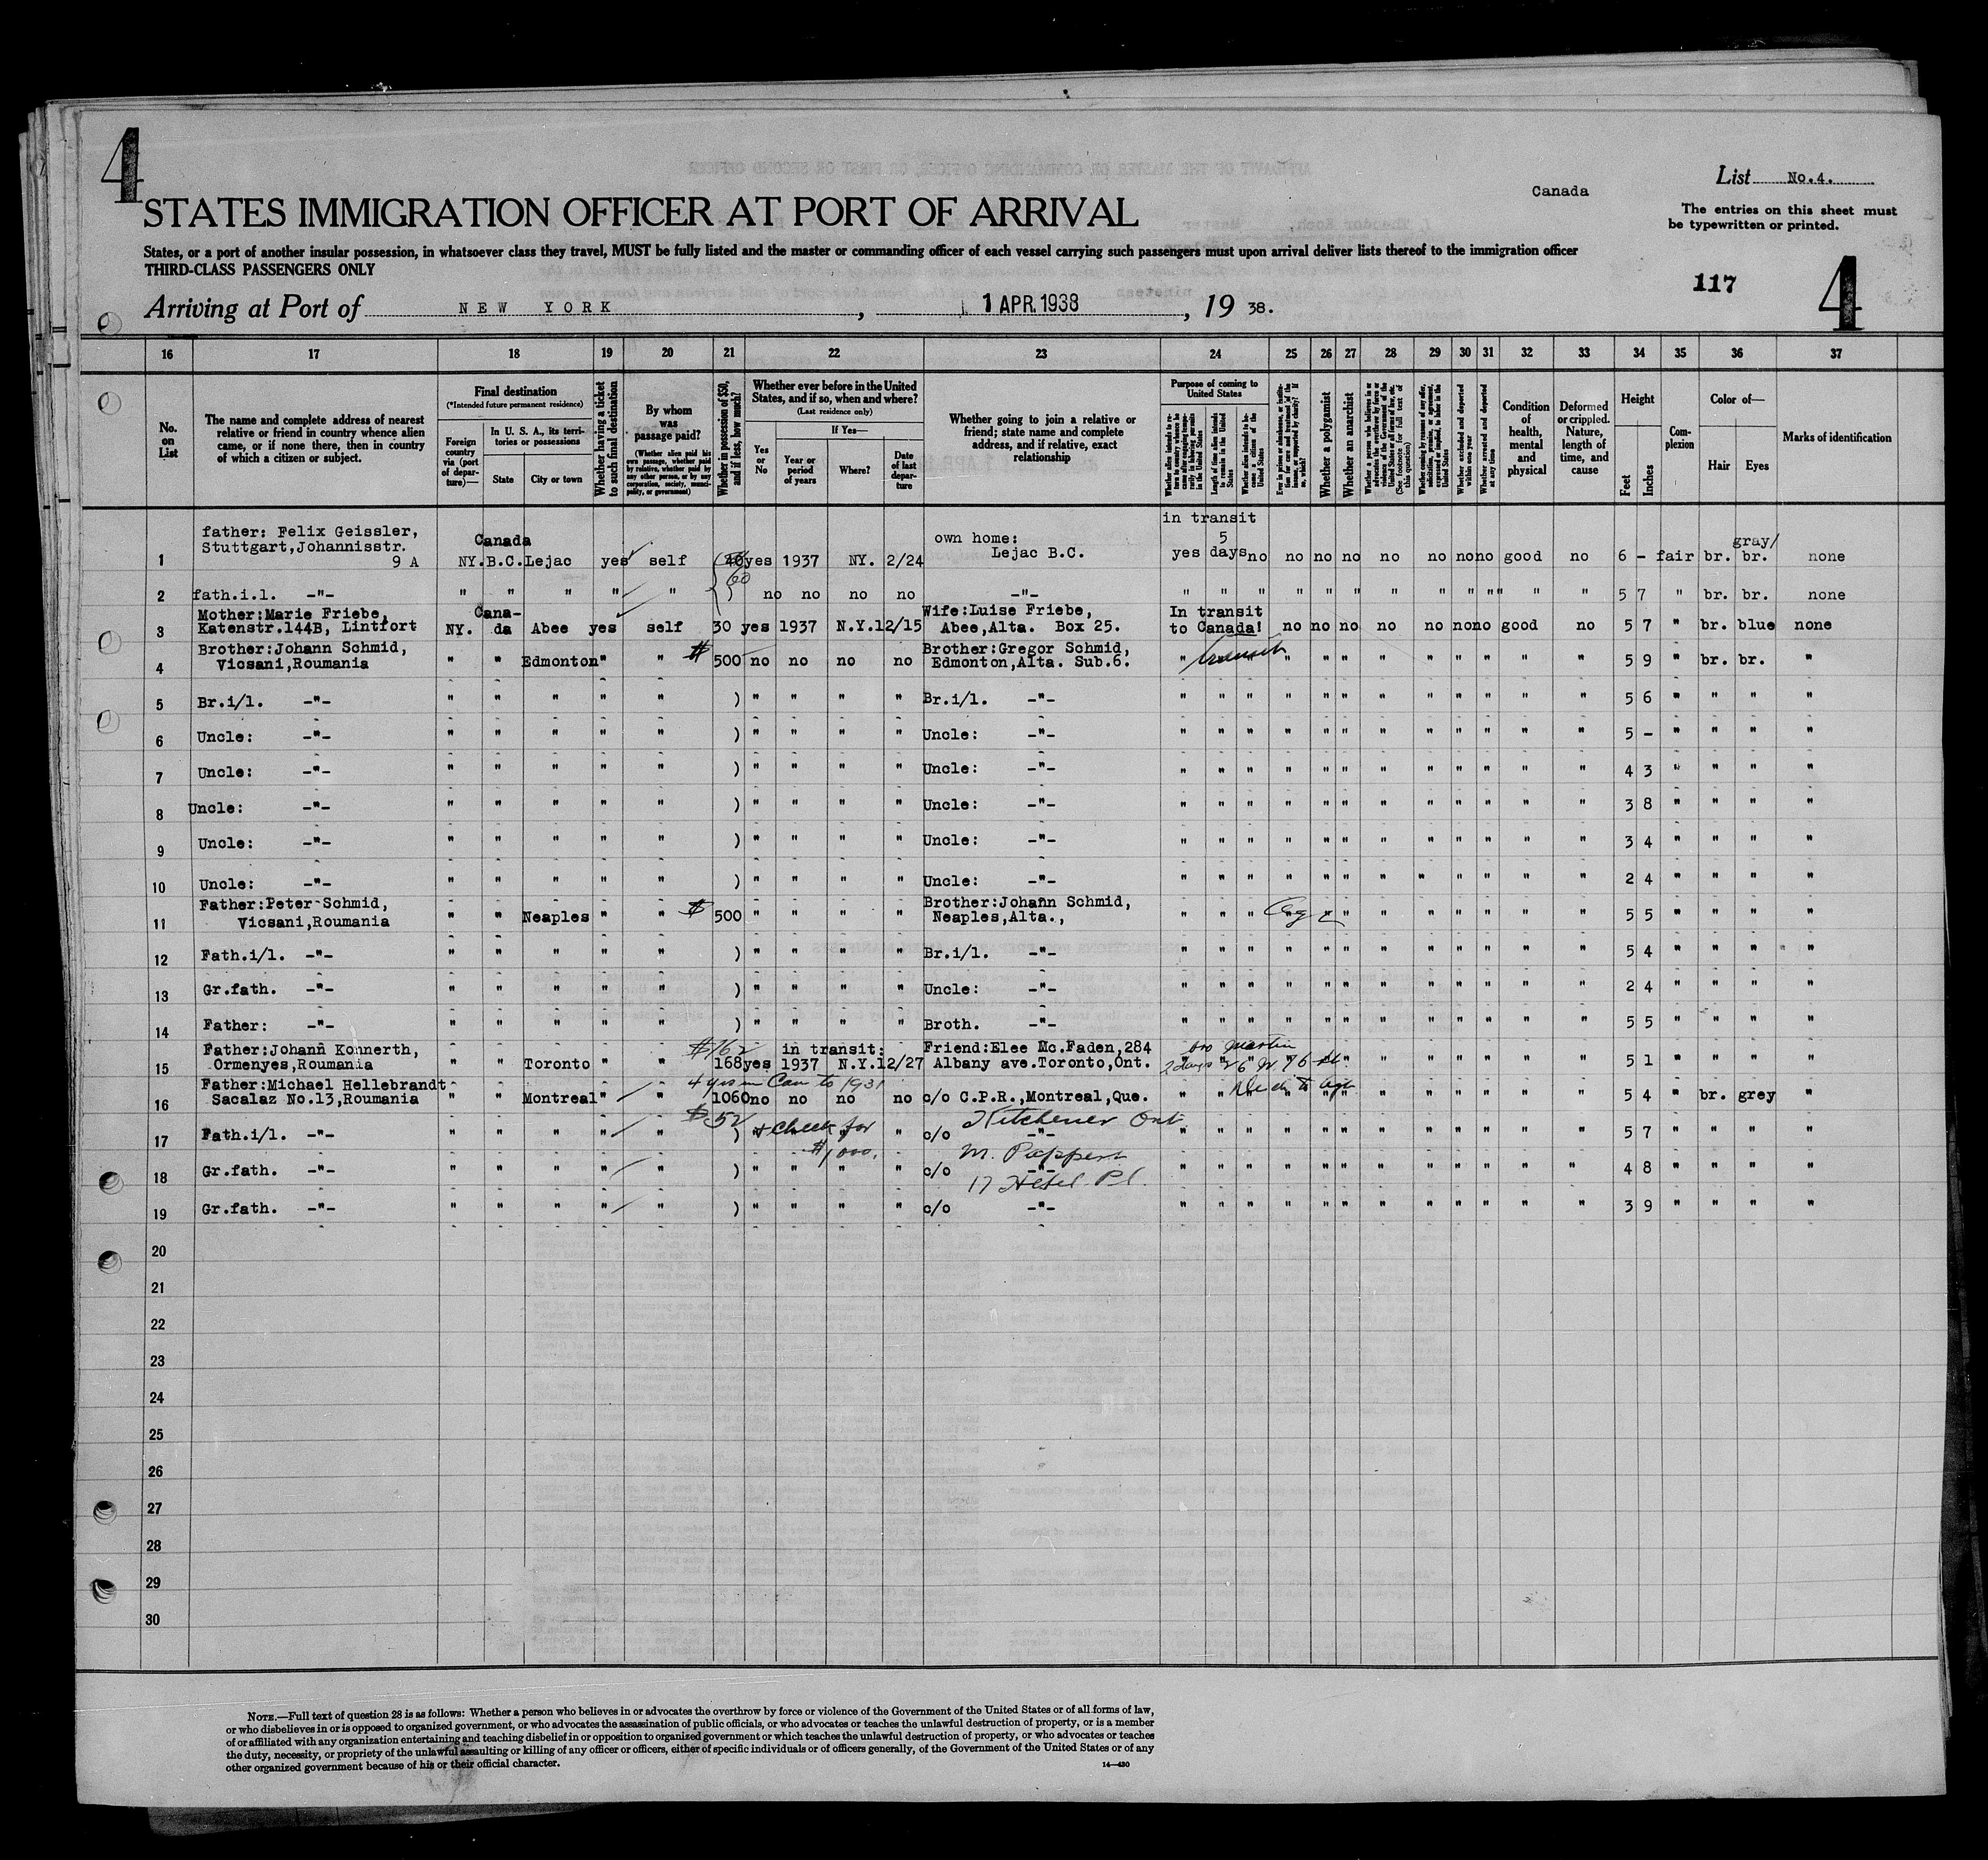 4
Canada
List No.4.
STATES IMMIGRATION OFFICER AT PORT OF ARRIVAL
The entries on this sheet must
be typewritten or printed.
States, or a port of another insular possession, in whatsoever class they travel, MUST be fully listed and the master or commanding officer of each vessel carrying such passengers must upon arrival deliver lists thereof to the immigration officer
THIRD-CLASS PASSENGERS ONLY
117
4
Arriving at Port of NEW YORK, 1 APR. 1938, 19 38.
16 17 18 19 20 21 22 23 24 25 26 27 28 29 30 31 32 33 34 35 36 37
No. on List
The name and complete address of nearest relative or friend in country whence alien came, or if none there, then in country of which a citizen or subject.
Final destination
(*Intended future permanent residence)
Foreign country via (port of departure)—
In U. S. A., its territories or possessions
State
City or town
Whether having a ticket to such final destination
By whom was passage paid?
(Whether alien paid his own passage, whether paid by relative, whether paid by any other person, or by any corporation, society, municipality, or government)
Whether in possession of $50, and if less, how much?
Whether ever before in the United States, and if so, when and where?
(Last residence only)
Yes or No
If Yes—
Year or period of years
Where?
Date of last departure
Whether going to join a relative or friend; state name and complete address, and if relative, exact relationship
Purpose of coming to United States
Length of time alien intends to remain in the United States
Whether alien intends to become a citizen of the United States
Whether a polygamist
Whether an anarchist
Whether excluded and deported within one year
Whether arrested and deported at any time
Condition of health, mental and physical
Deformed or crippled. Nature, length of time, and cause
Height
Feet
Inches
Complexion
Color of—
Hair
Eyes
Marks of identification
1 father: Felix Geissler, Stuttgart,Johannisstr. 9 A Canada NY. B.C. Lejac yes self yes 1937 NY. 2/24 own home: Lejac B.C. in transit yes 5 days no no no no no no no no good no 6 - fair br. gray/ br. none
2 fath.i.l. -"- " " " " " 60 no no no no -"- " " " " " " " " " " " " 5 7 " br. br. none
3 Mother:Marie Friebe, Katenstr.144B, Lintfort NY. Cana-da Abee yes self 30 yes 1937 N.Y. 12/15 Wife:Luise Friebe, Abee,Alta. Box 25. In transit to Canada! no no no no no no no good no 5 7 " br. blue none
4 Brother:Johann Schmid, Vicsani,Roumania " " Edmonton " " $ 500 no no no no Brother:Gregor Schmid, Edmonton,Alta. Sub.6. " transit " " " " " " " " " " 5 9 " br. br. "
5 Br.i/l. -"- " " " " " ) " " " " Br.i/l. -"- " " " " " " " " " " " " 5 6 " " " "
6 Uncle: -"- " " " " " ) " " " " Uncle: -"- " " " " " " " " " " " " 5 - " " " "
7 Uncle: -"- " " " " " ) " " " " Uncle: -"- " " " " " " " " " " " " 4 3 " " " "
8 Uncle: -"- " " " " " ) " " " " Uncle: -"- " " " " " " " " " " " " 3 8 " " " "
9 Uncle: -"- " " " " " ) " " " " Uncle: -"- " " " " " " " " " " " " 3 4 " " " "
10 Uncle: -"- " " " " " ) " " " " Uncle: -"- " " " " " " " " " " " " 2 4 " " " "
11 Father:Peter Schmid, Vicsani,Roumania " " Neaples " " $ 500 " " " " Brother:Johann Schmid, Neaples,Alta., " " " " " " " " " " " " 5 5 " " " "
12 Fath.i/l. -"- " " " " " ) " " " " Br.i/l. -"- " " " " " " " " " " " " 5 4 " " " "
13 Gr.fath. -"- " " " " " ) " " " " Uncle: -"- " " " " " " " " " " " " 2 4 " " " "
14 Father: -"- " " " " " ) " " " " Broth. -"- " " " " " " " " " " " " 5 5 " " " "
15 Father:Johann Konnerth, Ormenyes,Roumania " " Toronto " " $162 168 yes in transit: 1937 N.Y. 12/27 Friend:Elee Mc.Faden,284 Albany ave.Toronto,Ont. " " " " " " " " " " 5 1 " " " "
4 yrs in Can to 1931
16 Father:Michael Hellebrandt Sacalaz No.13,Roumania " " Montreal " " 1060 no no no no c/o C.P.R.,Montreal,Que. " " " " " " " " " " " " 5 4 " br. grey "
17 Fath.i/l. -"- " " " " " $52 ) + check for $1000. " c/o -"- Kitchener Ont. " " " " " " " " " " " " 5 7 " " " "
18 Gr.fath. -"- " " " " " ) " " " " c/o -"- M. Pappert " " " " " " " " " " " " 4 8 " " " "
17
19 Gr.fath. -"- " " " " " ) " " " " c/o -"- " " " " " " " " " " " " 3 9 " " " "
20
21
22
23
24
25
26
27
28
29
30
NOTE.—Full text of question 28 is as follows: Whether a person who believes in or advocates the overthrow by force or violence of the Government of the United States or of all forms of law,
or who disbelieves in or is opposed to organized government, or who advocates the assassination of public officials, or who advocates or teaches the unlawful destruction of property, or is a member
of or affiliated with any organization entertaining and teaching disbelief in or opposition to organized government or which teaches the unlawful destruction of property, or who advocates or teaches
the duty, necessity, or propriety of the unlawful assaulting or killing of any officer or officers, either of specific individuals or of officers generally, of the Government of the United States or of any
other organized government because of his or their official character.
14—430